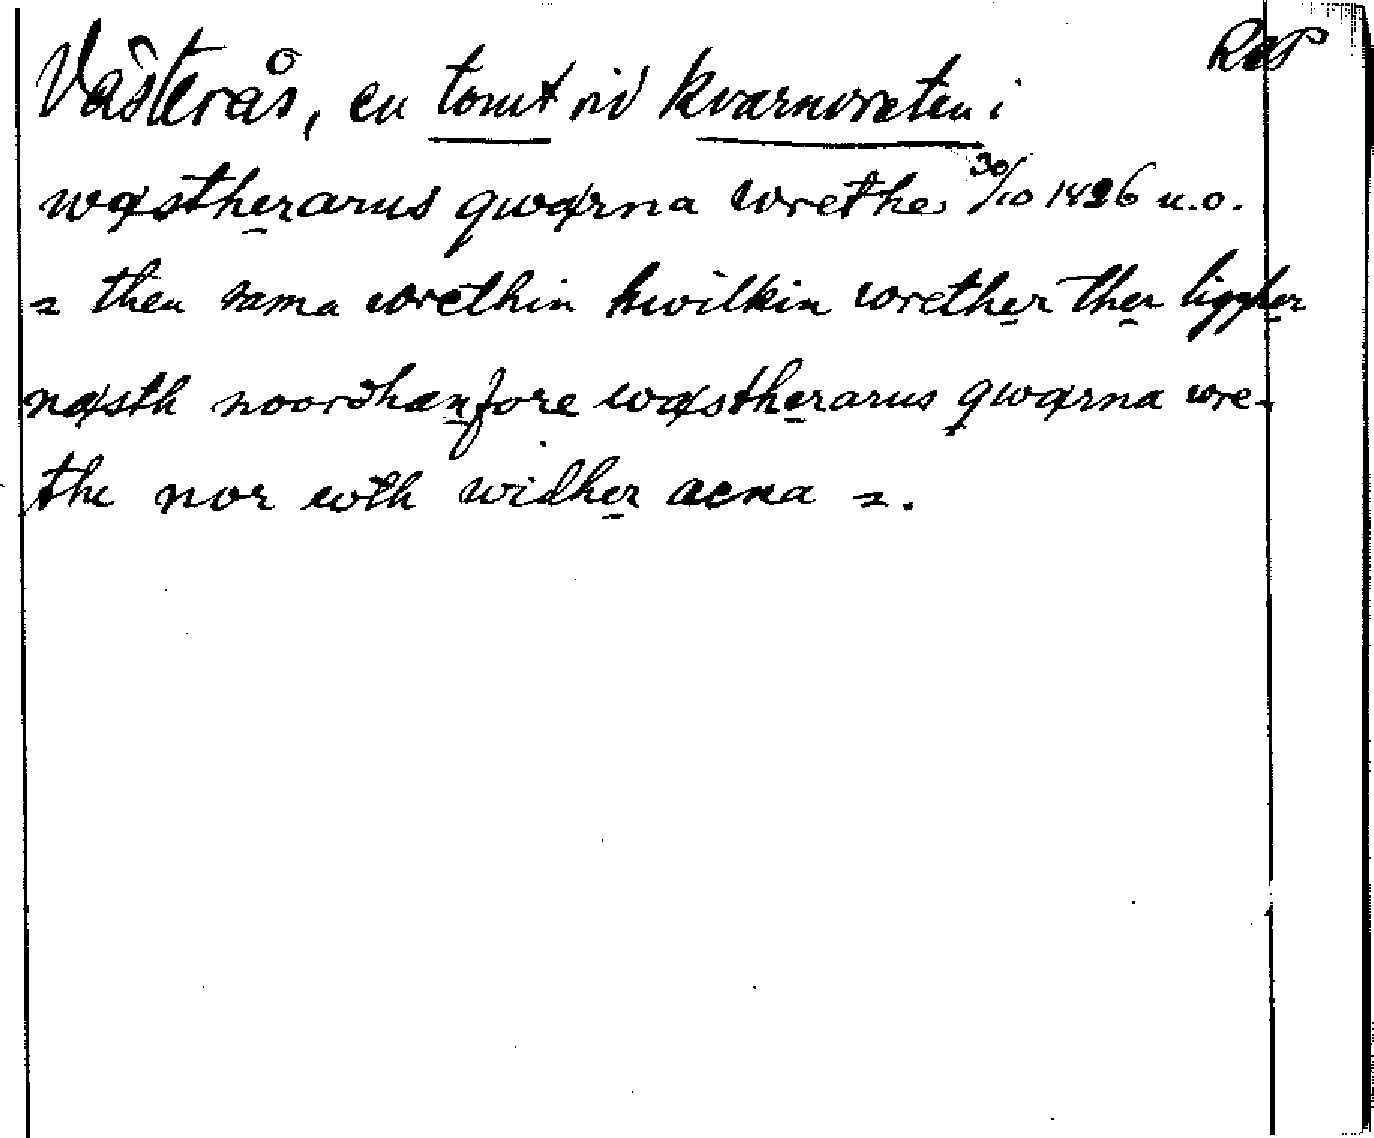 RAP
Västerås, en tomt vid kvarnvreten i
wæstherarus qwærna wrethe 30/10 1426 u.o.
= then sama wrethin hwilkin wrether ther liggher
næsth noordhænfore wæstherarus qwærna wre-
the nor wth widher aena =.